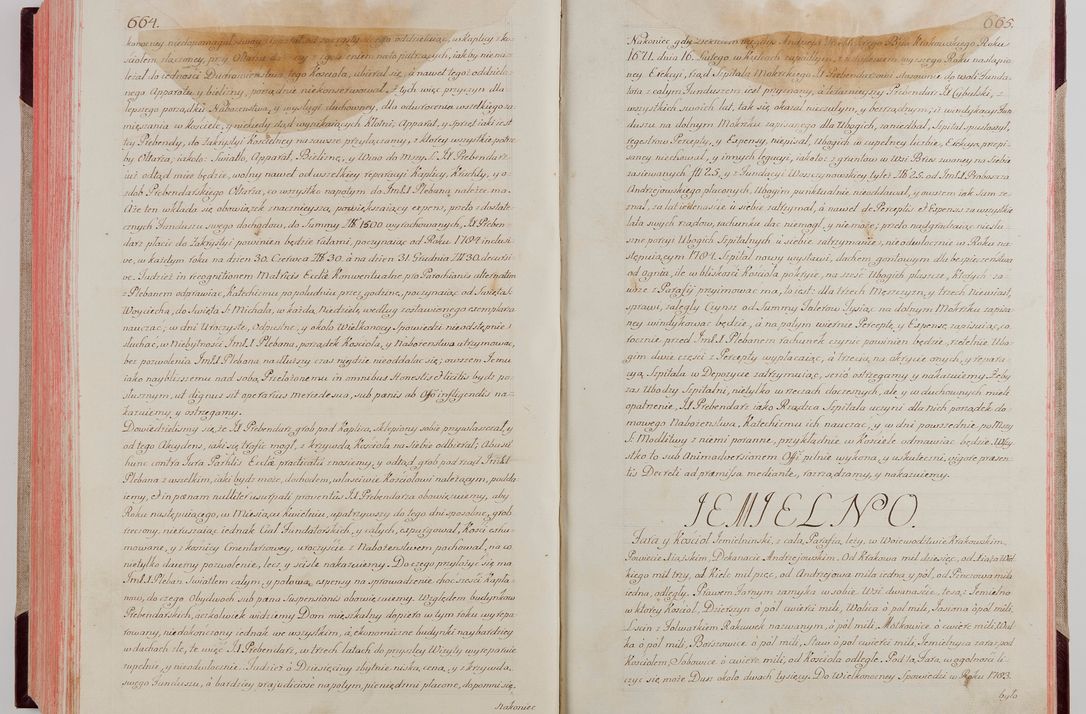 664.
kościołem złączoney, przy Ołtarzu
leżał do iedności Duchowieństwa tego Kościoła, ubierał się, a nawet tego oddziel-
nego Apparatu y bielizny, porządnie niekonserwował. Z tych więc przyczyn dla
lepszego porządku Nabożeństwa, y wysługi duchowney, dla odwrócenia wszelkiego za-
mięszania w Kościele, y niekiedy ztąd wynikaiących Kłótni, Apparat, y Sprzęt iaki iest
tey Prebendy, do Zakrystyi Kościelney na zawsze przyłączamy, z ktorey wszystkie potrze-
by Ołtarza, iakoto: Swiatło, Apparat, Bieliznę, y Wino do Mszy S. JX Prebendarz
iuż odtąd mieć będzie, wolny nawet od wszelkiey reparacyi Kaplicy, Kruchty, y o-
zdób Prebendarskiego Ołtarza, co wszystko napotym do Jmć X Plebana należeć ma.
Aże ten wkłada się obowiązek znacznieyszą powiększaiący expens, przeto z dostate-
cznych Funduszu swego dochodów, do Summy 1500 wyrachowanych, JX Preben-
darz płacić do Zakrystyi powinien będzie ratami, poczynaiąc od Roku 1784 inclusi-
ve, w każdym roku na dzień 30. Czerwca 30. a na dzień 31 Grudnia 30. decursi-
ve. Tudzież in recognitionem Matricis Ecclae Konwentualne pro Parochianis alternatim
z Plebanem odprawiać, Katechizmu po południu przez godzinę, poczynaiąc od Swięta S.
Woyciecha, do Swięta S. Michała, w każdą Niedzielę, według zostawionego exemplarza
nauczać; w dni Uroczyste, Odpustne, y około Wielkonocy Spowiedzi nieodstępnie
słuchać, w Niebytności Jmć X Plebana, porządek Kościoła, y Nabożeństwa utrzymować,
bez pozwolenia Jmć X Plebana na dłuższy czas nigdzie nieoddalać się; owszem Jemu
iako naybliższemu nad sobą Przełożonemu in omnibus Honestis & licitis bydź po-
słusznym, ut dignus sit operarius mercede sua, sub panis ab Offo infligendis na-
kazuiemy y ostrzegamy.
Dowiedzieliśmy się, że JX Prebendarz grob pod Kaplicą, sklepiony sobie przywłaszczał, y
od tego Akcydens, iaki się trafić mogł, z krzywdą Kościoła na Siebie odbierał; Abusum
hunc contra Jura Parhlis Ecclae practicatum znosiemy, y odtąd grob pod rząd Jmć X
Plebana z wszelkim, iaki bydź może, dochodem, właściwie Kościołowi należącym, podda-
iemy, & in panam nulliter usurpati proventus JX Prebendarza obowięzuiemy, aby
Roku następuiącego, w Miesiącu Kwietniu, upatrzywszy do tego dni sposobne, grob
rzeczony, nieruszaiąc iednak Ciał Fundatorskich, y całych, expurgował, Kości exhu-
mowane, y z kośnicy Cmentarzowey, uroczyście z Nabożeństwem pochował, na co
nietylko daiemy pozwolenie, lecz y ściśle nakazuiemy. Do czego przyłoży się ma
Jmć X Pleban Swiatłem całym, y połową expensy na sprowadzenie choć sześciu Kapła-
now, do czego Obydwoch sub pana Suspensionis obowięzuiemy. Względem budynkow
Prebendarskich, aczkolwiek widziemy Dom mieszkalny dopiero w tym roku wyrepa-
rowany, niedokończony iednak we wszystkim, a ekonomiczne budynki naybardziey
w dachach złe, te więc JX Prebendarz, w trzech latach do przyszłey Wizyty wyreparuie
zupełnie, y nieodwłocznie. Tudzież o Dziesięciny zbytnie niską ceną, y z krzywdą
swego Funduszu, a bardziey prajudiciosè napotym, pieniędzmi płacone, dopomni się.
Nakoniec

665.
Nakoniec gdy z
1671. dnia 16. Lutego w Kielcach zapadłym,
ney Erekcyi, rząd Szpitala Mokrskiego JX Prebendarzowi stosownie do woli Funda-
tora z całym Funduszem iest przyznany, a teraznieyszy Prebendarz JX Cybulski, z
wszystkich swoich lat, tak się okazał nieczułym, y bezrządnym iż windykacyi Fun-
duszu na dolnym Mokrsku zapisanego dla Ubogich, zaniedbał, Szpital spustoszył,
regestrow Percepty, y Expensy, niepisał, Ubogich w zupełney liczbie, Erekcyą przepi-
saney niechował, y innych legacyi, iakoto: z gruntow w wsi Brześ zwaney na Siebie
zasiewanych 25, y z Fundacyi Woszczynowskiey tyleż 25. od Jmć X Proboszcza
Andrzeiowskiego płaconych, Ubogim punktualnie nieoddawał, y owszem iak sam ze-
znał, za lat iedenaście u siebie zatrzymał, a nawet de Perceptis et Expensis za wszystkie
lata swych rządow, rachunku dać niemogł, y nie może; przeto nadgradzaiąc niesłu-
szne pożyt Ubogich Szpitalnych u siebie zatrzymanie, nieodwłocznie w Roku na-
stępuiącym 1784. Szpital nowy wystawi, dachem gontowym dla bespieczeństwa
od ognia, ile w bliskości Kościoła pokryie, na sześć Ubogich pluszcz, Których za-
wsze z Parafii przyimować ma, to iest: dla trzech Męszczyzn, y trzech Niewiast,
sprawi, zaległy Czynsz od Summy Talerow Tysiąc na dolnym Mokrsku zapisa-
ney windykować będzie, a na potym wiernie Perceptę, y Expensę, zapisuiąc, co-
rocznie przed Jmć X Plebanem rachunek czynić powinien będzie, rzetelnie Ubo-
gim dwie części z Percepty wypłacaiąc, a trzecią na okrycie onych, y repara-
cyą, Szpitala w Depozycie zatrzymuiąc, seriò ostrzegamy y nakazuiemy. Żeby
zaś Ubodzy Szpitalni, nietylko w rzeczach doczesnych, ale y w duchownych mieli
opatrzenie, JX Prebendarz iako Rządca Szpitala uczyni dla nich porządek do-
mowego Nabożeństwa, Katechizmu ich nauczać, y w dni powszednie po Mszy
S. Modlitwy z niemi poranne, przykładnie w Kościele odmawiać będzie. Wszy-
stko to sub Animadversionem Offi pilnie wykona, y uskuteczni, vigore prasen-
tis Decreti ad pramissa mediante, rozrządzamy, y nakazuiemy.
IEMIELNO.
Fara y Kościoł Jemielninski, z całą Parafią, leży, w Woiewodztwie Krakowskim,
Powiecie Xiąskim, Dekanacie Andrzeiowskim. Od Krakowa mil dziesięć, od Xiąża Wiel-
kiego mil trzy, od Kielc mil pięć, od Andrzeyowa mila iedna, y pół, od Pinczowa mila
iedna, odległy. Prawem Farnym zamyka w sobie, Wsi dwanaście, te są: Jemielno
w ktorey Kościoł, Dzierszyn o pół cwierci mili, Wolica o poł mili, Jasiona o poł mili,
Łścin z Folwarkiem Rakowek nazwanym, o poł mili, Mołkowice o cwierć mili, Wol-
ka o poł mili, Borszowice o poł mili, Staw o poł cwierci mili, Jemielnica zaraz pod
Kościołem, Sobowice o cwierć mili, od Kościoła odległe. Pod tą Farą, w ogolności li-
czyć się, może Dusz około dwach tysięcy. Do Wielkonocney Spowiedzi w Roku 1783.
było